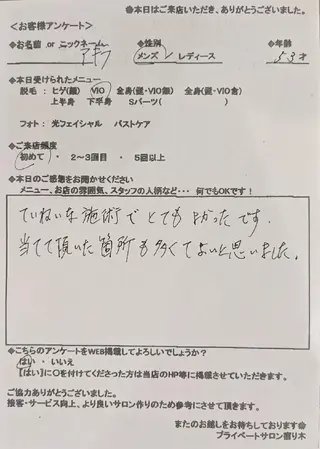 ◎本日はご来店いただき、ありがとうございました。
<お客様アンケート>
◆お名前 or ニックネーム ◆性別 ◆年齢
アキラ メンズ レディース 53才
◆本日受けられたメニュー
脱毛：ヒゲ(顔) VIO 全身(顔・VIO無) 全身(顔・VIO含)
上半身 下半身 Sパーツ( )
フォト：光フェイシャル バストケア
◆ご来店頻度
初めて ・ 2〜3回目 ・ 5回以上
◆本日のご感想をお聞かせください
メニュー、お店の雰囲気、スタッフの人柄など・・・ 何でもOKです！
ていねいな施術でとてもよかったです。
当てて頂いた箇所も多くてよいと思いました。
◆こちらのアンケートをWEB掲載してよろしいでしょうか？
はい ・ いいえ
【はい】に〇を付けてくださった方は当店のHP等に掲載させていただきます。
ご協力ありがとうございました。
接客・サービス向上、より良いサロン作りのため参考にさせて頂きます。
またのお越しをお待ちしております◎
プライベートサロン宿り木